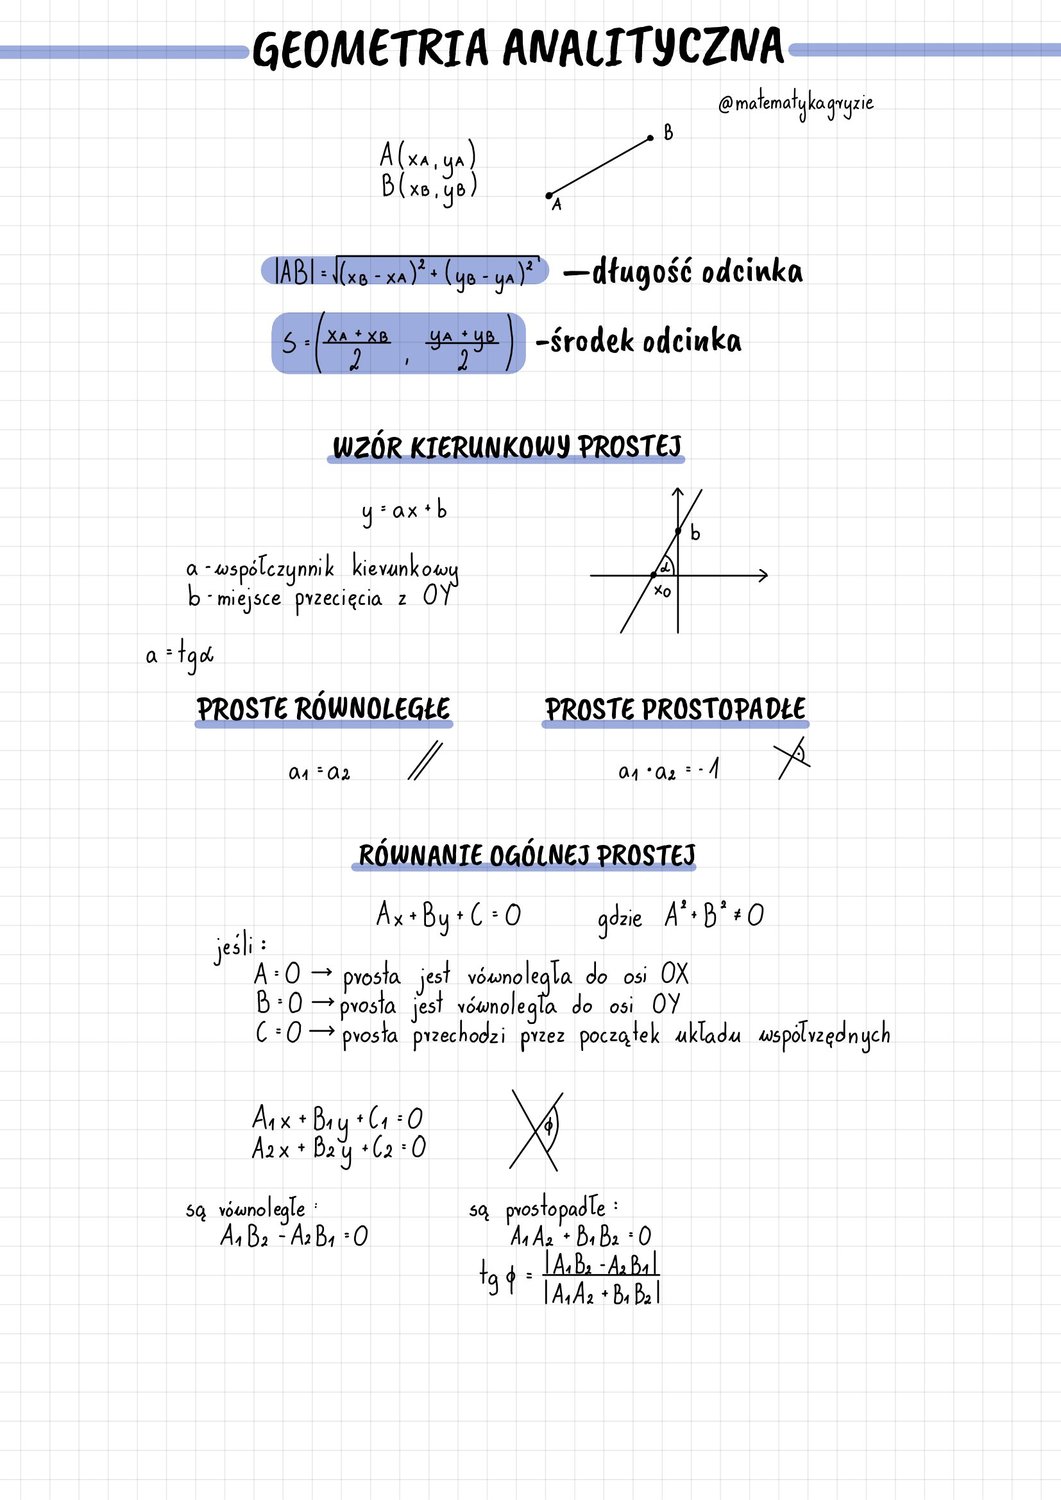 GEOMETRIA ANALITYCZNA
@matematykagryzie
A(xA, yA)
B(xB, yB)
B
A
|AB| = √(xB - xA)² + (yB - yA)² — długość odcinka
S = (xA + xB / 2 , yA + yB / 2) - środek odcinka
WZÓR KIERUNKOWY PROSTEJ
y = ax + b
b
α
x0
a - współczynnik kierunkowy
b - miejsce przecięcia z OY
a = tgα
PROSTE RÓWNOLEGŁE
PROSTE PROSTOPADŁE
a1 = a2
a1 · a2 = -1
RÓWNANIE OGÓLNEJ PROSTEJ
Ax + By + C = 0 gdzie A² + B² ≠ 0
jeśli :
A = 0 → prosta jest równoległa do osi OX
B = 0 → prosta jest równoległa do osi OY
C = 0 → prosta przechodzi przez początek układu współrzędnych
A1x + B1y + C1 = 0
A2x + B2y + C2 = 0
ϕ
są równoległe :
A1B2 - A2B1 = 0
są prostopadłe :
A1A2 + B1B2 = 0
tg ϕ = |A1B2 - A2B1| / |A1A2 + B1B2|